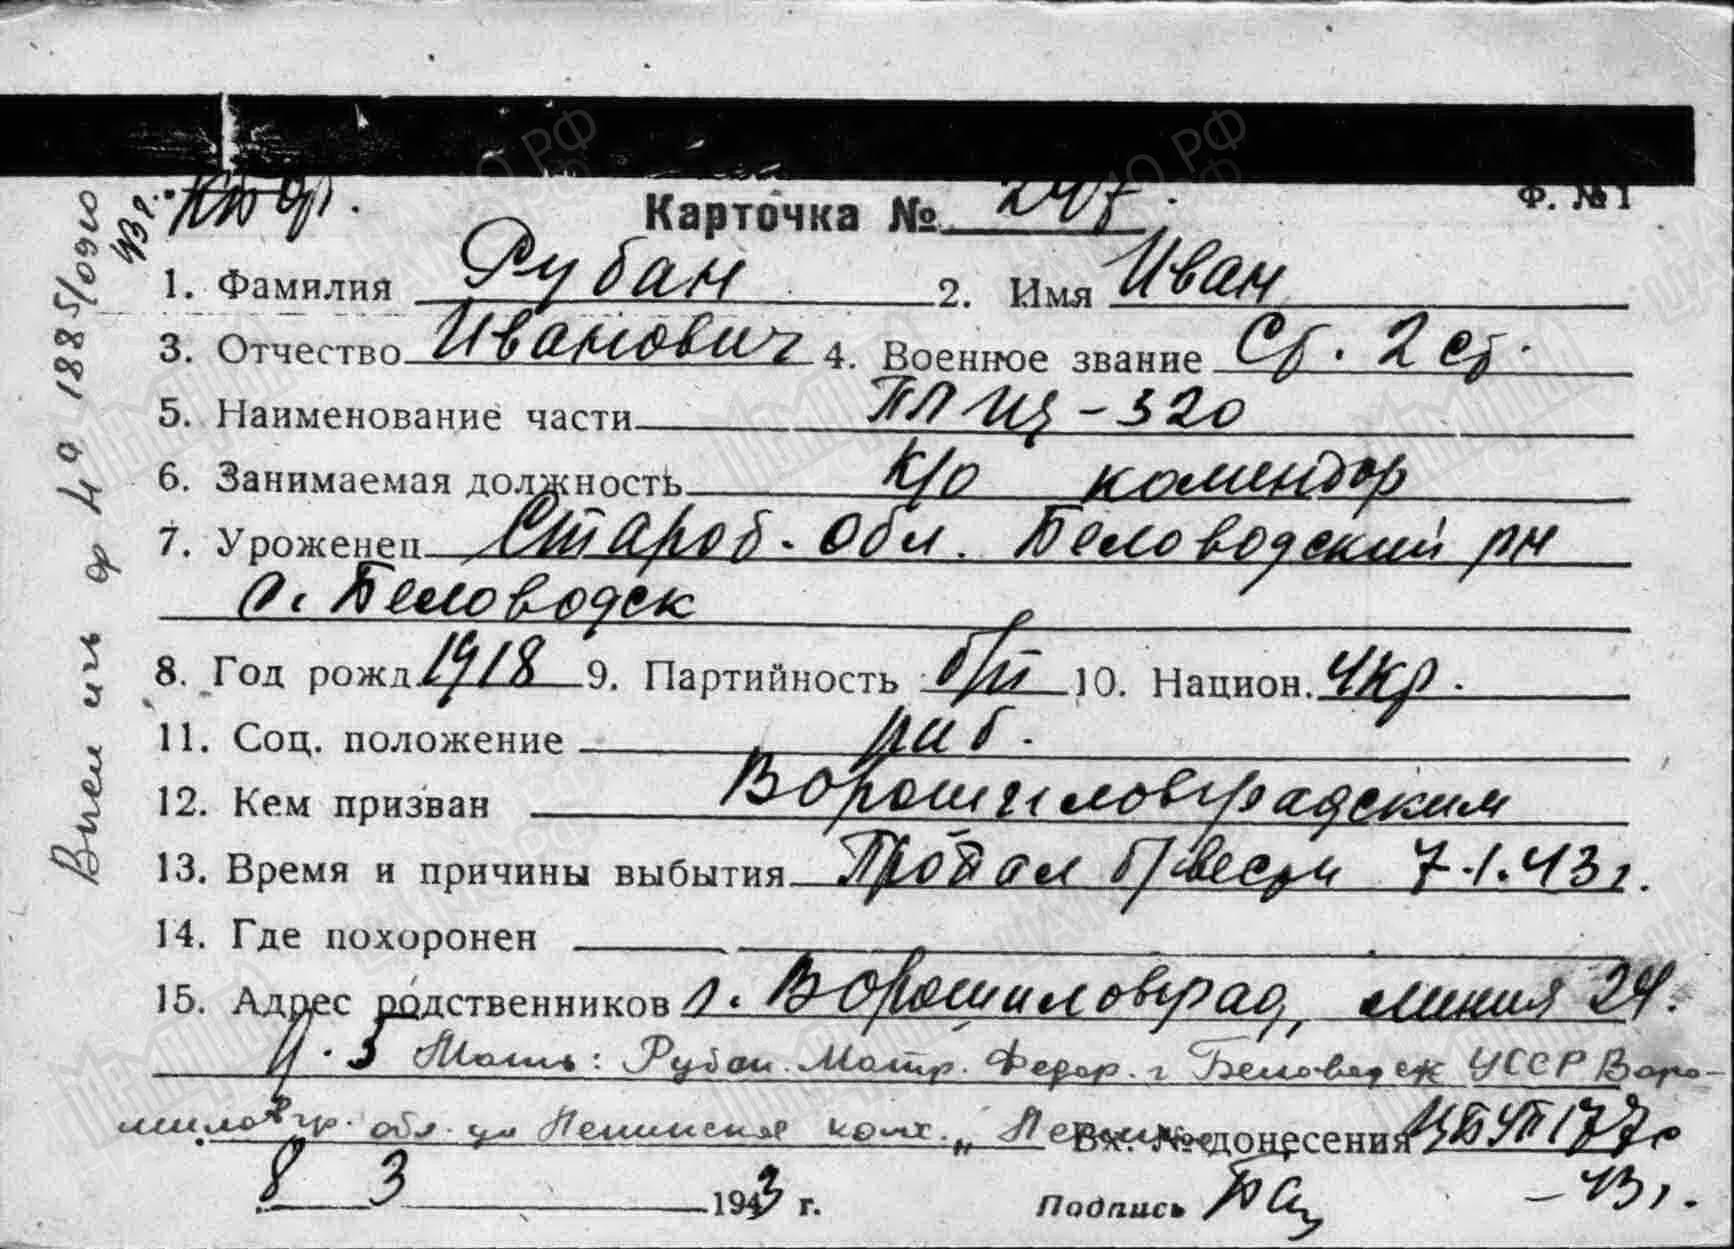 КБФ.
Карточка № 247.
Ф. № 1
1. Фамилия Рубан 2. Имя Иван
3. Отчество Иванович 4. Военное звание Ст. 2 ст.
5. Наименование части ПЛ Щ-320
6. Занимаемая должность к/о комендор
7. Уроженец Староб. обл. Беловодский рн
с. Беловодск
8. Год рожд. 1918 9. Партийность б/п 10. Национ. Укр.
11. Соц. положение раб.
12. Кем призван Ворошиловградским
13. Время и причины выбытия Пропал б/вести 7.1.43 г.
14. Где похоронен
15. Адрес родственников г. Ворошиловград, линия 24.
д. 5 Мать: Рубан Матр. Федор. г Беловодск УССР Воро-
шиловгр. обл. ул Ленинская колх. „Ленин
Вх. № донесения
8 3 1943 г. Подпись
– 43 г.
43 г.